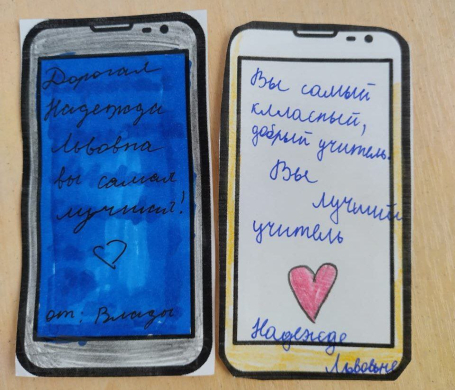 Дорогая
Надежда
Львовна
вы самая
лучшая!
от: Влады
Вы самый
клласный,
добрый учитель.
Вы
лучший
учитель
Надежде
Львовне